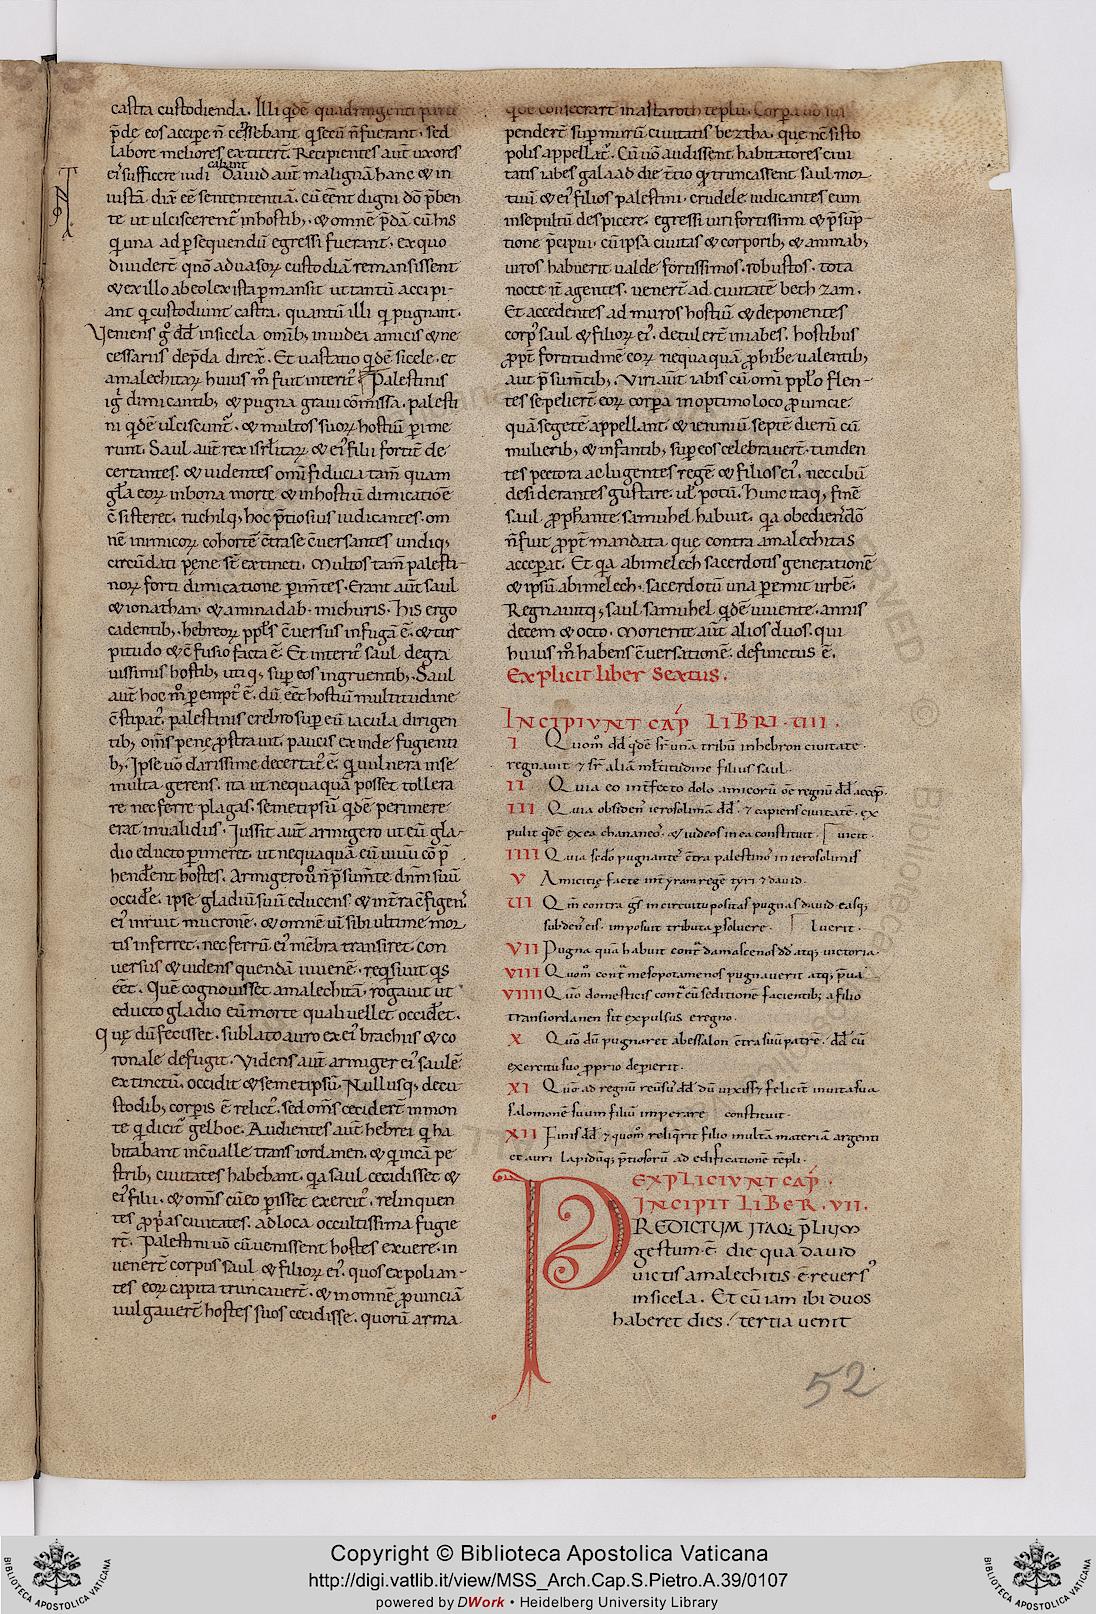 castra custodienda. Illi qdē quadringenti
p̄de eos accipe n̄ cessebant q̄ secū n̄ fuerant. sed
labore meliores extiterē. Recipientes aut̄ uxores
ei sufficere iudicabant dauid aut̄ malignā hanc & in
iustā. dix̄ eē sentententiā. cū eēnt digni dō p̄ben
te ut ulciscerent̄ inhostib; & omnē p̄dā. cū his
qui una ad psequendū egressi fuerant. exquo
diuiderē quō aduasoꝝ custodiā remansissent
& exillo abeolexista pmansit ut tantū accipi-
ant q̄ custodiunt castra. quantū illi q̄ pugnant.
Veniens g̊ dd̄ insicela omib; inuidea amicis & ne
cessariis dep̄da direx̄. Et uastatio qdē sicele. et
amalechitaꝝ huius m̊ fuit interit᷒ Palestinis
igit̄ dimicantib; & pugna graui cōmissa. palesti
ni qdē ulciscunt᷒. & multos suoꝝ hostiū pime
runt. Saul aut̄ rex isrl̄itaꝝ & ei᷒ filii fortit̄ de
certantes. & uidentes om̄i fiducia tam̄ quam
gl̄a eoꝝ inbona morte & inhostiū dimicatiōe
c̄sisteret. nichilq; hoc p̄tiosius iudicantes. om
nē inimicoꝝ cohortē c̄tra se c̄uersantes undiq;
circūdati pene st̄ extincti. Multos tam̄ palesti-
noꝝ forti dimicatione pimētes. Erant aut̄ saul
& ionathan. & aminadab. michuris. His ergo
cadentib; hebreoꝝ ppl̄s c̄uersus infugā ē. & tur
pitudo & c̄fusio facta ē. Et interiit saul degra
uissimis hostib; utiq; sup eos ingruentib; Saul
aut̄ hoc m̊ pempt᷒ ē. dū eēt hostiū multitudine
c̄stipat᷒. palestinis crebro sup eū iacula dirigen
tib; om̄s pene pstrauit. paucis exinde fugienti
b; Ipse uō clarissime decertat᷒ ē. qui uulnera inse
multa gerens. ita ut nequaquā posset tollera
re nec ferre plagas. semetipsū qdē perimere
erat inualidus. Iussit aut̄ armigero ut eū gla-
dio educto pimeret. ut nequaquā eū uiuū cō p̄
henderent hostes. Armigero uō n̄ p̄sumēte dn̄m suū
occidere. ipse gladiū suū educens & int̄ra c̄figens
ei᷒ inruit mucronē. & omnē uī sibi ultime mor
tis inferret. nec ferrū ei᷒ mēbra transiret. con
uersus & uidens quendā iuuenē. reqsiuit qs
eēt. Quē cognouisset amalechitā. rogauit ut
educto gladio eū morte quali uellet occideret.
Quę dū fecisset. sublato auro ex ei᷒ brachiis & co
ronale defugit. Videns aut̄ armiger ei᷒ saulē
extinctū. occidit & semetipsū. Nullusq; decu
stodib; corporis ē relict᷒. sed om̄s ceciderē inmon
te q̄ dicit᷒ gelboe. Audientes aut̄ hebrei q̄ ha
bitabant inc̄ualle trans iordanen. & q̄ incā pe
strib; ciuitates habebant. qa saul cecidisset &
ei᷒ filii. & om̄is cū eo pisset exercit᷒. relinquen
tes pp̄as ciuitates. ad loca occultissima fugie
rē. Palestini uō cū uenissent hostes exuere. in
uenerē corpus saul & filioꝝ ei᷒. quos expolian-
tes eoꝝ capita truncauerē. & in omnē puinciā
uulgauerē hostes suos cecidisse. quorū arma
qdē consecrarē inastaroth teplū. Corpa uō
penderē sup murū ciuitatis beztha. que nē sisto
polis appellat᷒. Cū uō audissent habitatores ciui
tatis iabes galaad die t̄tio q̄ truncassent saul mor
tuū & ei᷒ filios palestini. crudele iudicantes eum
insepultū despicere. egressi uiri fortissimi & p̄sūp-
tione p̄cipui. cū ipsa ciuitas & corporib; & animab;
uiros habuerit ualde fortissimos. robustos. tota
nocte it̄ agentes. uenerē ad ciuitatē beth zam.
Et accedentes ad muros hostiū & deponentes
corp᷒ saul & filioꝝ ei᷒. detulerē iniabes. hostibus
ppt̄ fortitudinē eoꝝ nequaquā phibere ualentib;
aut p̄sumētib; Viri aut̄ iabis cū om̄i pplo flen-
tes sepelierē eoꝝ corpa inoptimo loco puincie.
quā segetē appellant. & ieiuniū septē dierū cū
mulierib; & infantib; sup eos celebrauerē. tunden
tes pectora ac lugentes regē & filios ei᷒. nec cibū
desiderantes gustare. ul̄ potū. Hunc itaq; finē
saul pphante samuhel habuit. qa obediens dō
n̄ fuit ppt̄ mandata que contra amalechitas
acceperat. Et qa abimelech sacerdotis generationē
& ipsū abimelech. sacerdotū una pemit urbē.
Regnauitq; saul samuhel qdē uiuente. annis
decem & octo. Moriente aut̄ alios duos. qui
huius m̊ habens c̄uersationē. defunctus ē.
Explicit liber Sextus.
INCIPIVNT CAP̄ LIBRI. UII.
I Quom̄ dd̄ qdē sr̄ una tribū inhebron ciuitate.
regnauit & sr̄ aliā multitudine filius saul.
II Quia eo int̄fecto dolo amicorū oē regnū dd̄ accep̄.
III Quia obsidens ierosolimā dd̄. & capiens ciuitatē. ex
pulit qdē ex ea chananeos. & iudeos in ea constituit. uicit.
IIII Quia sc̄do pugnantes c̄tra palestinos in ierosolimis
V Amicitię facte int̄ yram regē tyri & dauid.
UI Qm̄ contra g̅s in circuitu positas pugnas dauid easq;
subdens eis. imposuit tributa psoluere. luerit.
VII Pugna quā habuit cont᷒ damascenos dd̄ atq; uictoria.
VIII Quom̄ cont᷒ mesopotamenos pugnauerit atq; p̄ua
VIIII Quō domesticis cont᷒ eū seditione facientib; a filio
transiordanen sit expulsus e regno.
X Quō dū pugnaret abessalon c̄tra suū patrē. dd̄ cū
exercitu suo pprio depierit.
XI Quō ad regnū reuersus dd̄ dū uixisset & felicit̄ inuita sua
salomonē suum filiū imperare constituit.
XII Finis dd̄ & quom̄ reliqrit filio multā materiā argenti
et auri lapidūq; p̄tiosorū ad edificationē tēpli.
EXPLICIVNT CAP̄.
INCIPIT LIBER. VII.
PREDICTVM ITAQ; P̄LIVM
gestum ē die qua dauid
uictis amalechitis ē reuers᷒
insicela. Et cū iam ibi duos
haberet dies. tertia uenit
52
Copyright © Biblioteca Apostolica Vaticana
http://digi.vatlib.it/view/MSS_Arch.Cap.S.Pietro.A.39/0107
powered by DWork • Heidelberg University Library